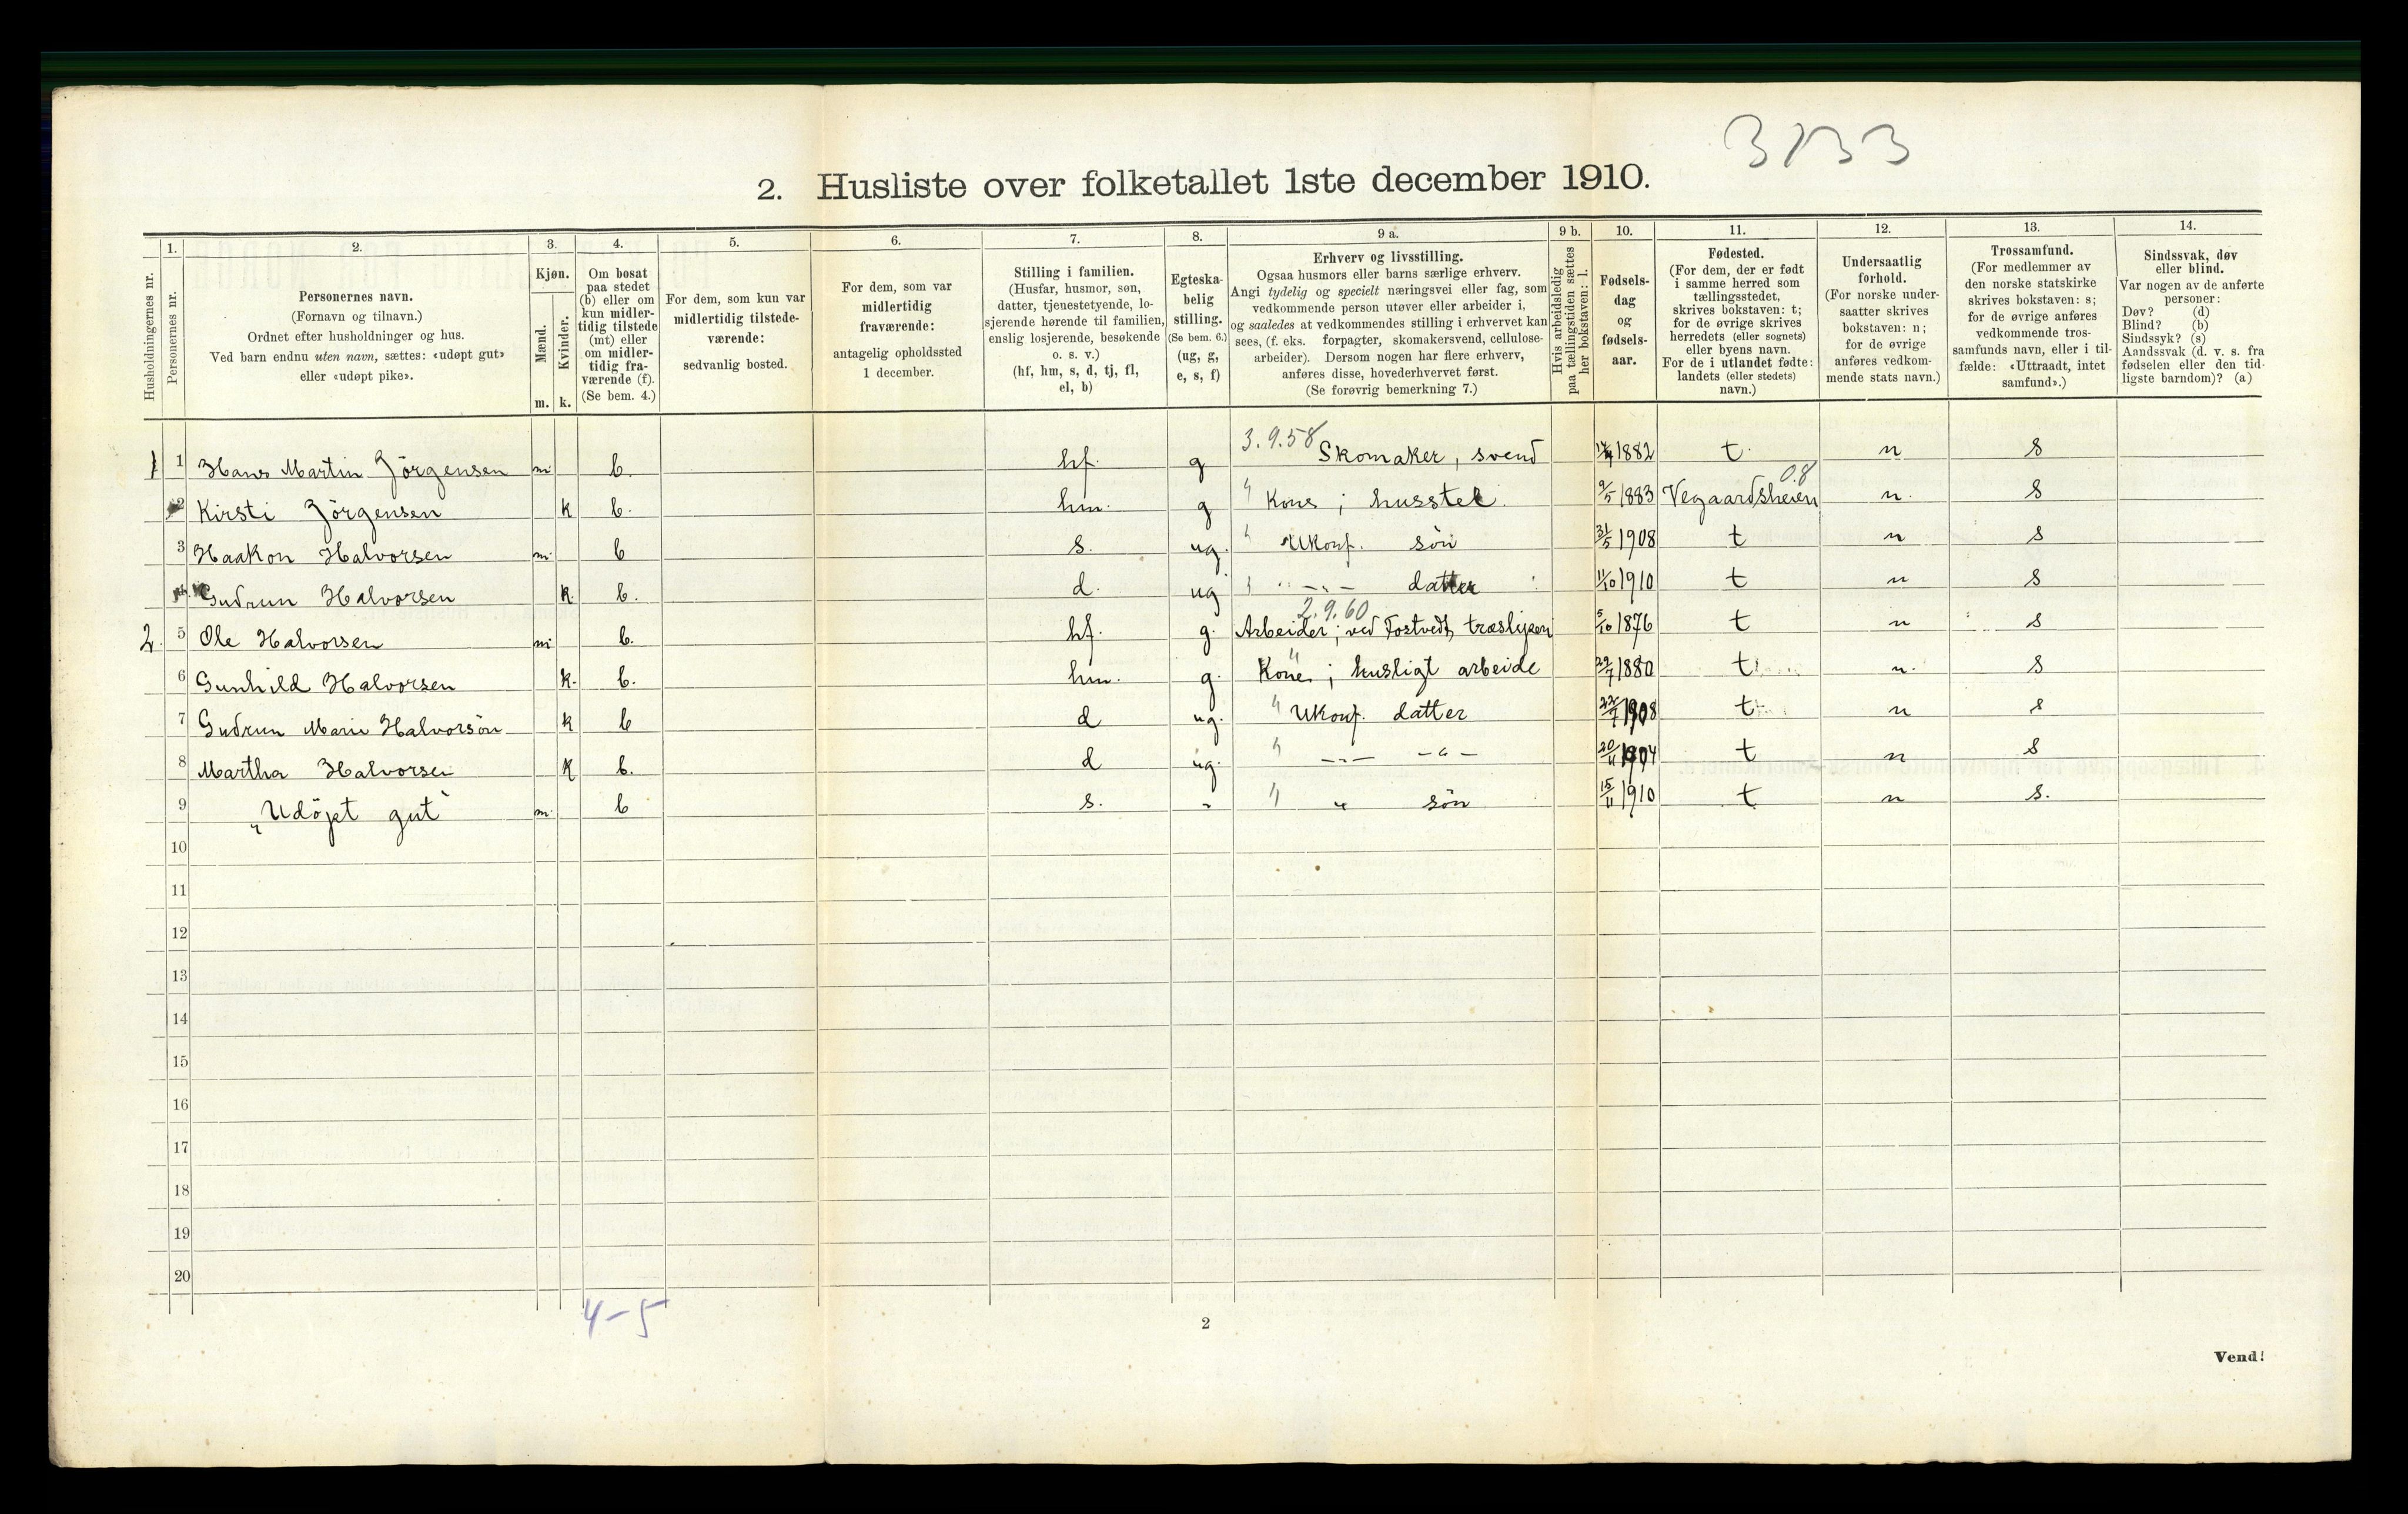 3133
2. Husliste over folketallet 1ste december 1910.
Husholdningernes nr.
1.
Personernes nr.
2.
Personernes navn.
(Fornavn og tilnavn.)
Ordnet efter husholdninger og hus.
Ved barn endnu uten navn, sættes: «udøpt gut»
eller «udøpt pike».
3.
Kjøn.
Mænd.
Kvinder.
m. k.
4.
Om bosat
paa stedet
(b) eller om
kun midler-
tidig tilstede
(mt) eller
om midler-
tidig fra-
værende (f).
(Se bem. 4.)
5.
For dem, som kun var
midlertidig tilstede-
værende:
sedvanlig bosted.
6.
For dem, som var
midlertidig
fraværende:
antagelig opholdssted
1 december.
7.
Stilling i familien.
(Husfar, husmor, søn,
datter, tjenestetyende, lo-
sjerende hørende til familien,
enslig losjerende, besøkende
o. s. v.)
(hf, hm, s, d, tj, fl,
el, b)
8.
Egteska-
belig
stilling.
(Se bem. 6.)
(ug, g,
e, s, f)
9 a.
Erhverv og livsstilling.
Ogsaa husmors eller barns særlige erhverv.
Angi tydelig og specielt næringsvei eller fag, som
vedkommende person utøver eller arbeider i,
og saaledes at vedkommendes stilling i erhvervet kan
sees, (f. eks. forpagter, skomakersvend, cellulose-
arbeider). Dersom nogen har flere erhverv,
anføres disse, hovederhvervet først.
(Se forøvrig bemerkning 7.)
9 b.
Hvis arbeidsledig
paa tællingstiden sættes
her bokstaven: l.
10.
Fødsels-
dag
og
fødsels-
aar.
11.
Fødested.
(For dem, der er født
i samme herred som
tællingsstedet,
skrives bokstaven: t;
for de øvrige skrives
herredets (eller sognets)
eller byens navn.
For de i utlandet fødte:
landets (eller stedets)
navn.)
12.
Undersaatlig
forhold.
(For norske under-
saatter skrives
bokstaven: n;
for de øvrige
anføres vedkom-
mende stats navn.)
13.
Trossamfund.
(For medlemmer av
den norske statskirke
skrives bokstaven: s;
for de øvrige anføres
vedkommende tros-
samfunds navn, eller i til-
fælde: «Uttraadt, intet
samfund».)
14.
Sindssvak, døv
eller blind.
Var nogen av de anførte
personer:
Døv? (d)
Blind? (b)
Sindssyk? (s)
Aandssvak (d. v. s. fra
fødselen eller den tid-
ligste barndom)? (a)
1 1 Hans Martin Jörgensen m b. hf. g 3.9.58 Skomaker, svend 1882 t. n s
2 Kirsti Jörgensen k b. hm. g " Kone ; husstel. 9/5 1883 Vegaardsheien 08 n. s
3 Haakon Halvorsen m b s. ug. " Ukonf. sön 31/5 1908 t n s
4 Gudrun Halvorsen k. b. d. ug " -"- datter 11/10 1910 t n s
2. 5 Ole Halvorsen m b. hf. g. 2.9.60 Arbeider; ved Fostvedt træsliperi 5/10 1876 t n s
6 Gunhild Halvorsen k. b. hm. g. " Kone ; husligt arbeide 29/7 1880 t n. s
7 Gudrun Marie Halvorsön k b d ug. " Ukonf. datter 22/7 1908 t n s
8 Martha Halvorsen k b. d ug. " -"- -"- 20/11 1904 t n s
9 „Udöpt gut" m. b s. " " " sön 15/11 1910 t n s.
10
11
12
13
14
15
16
17
18
19
20
4-5
2
Vend!